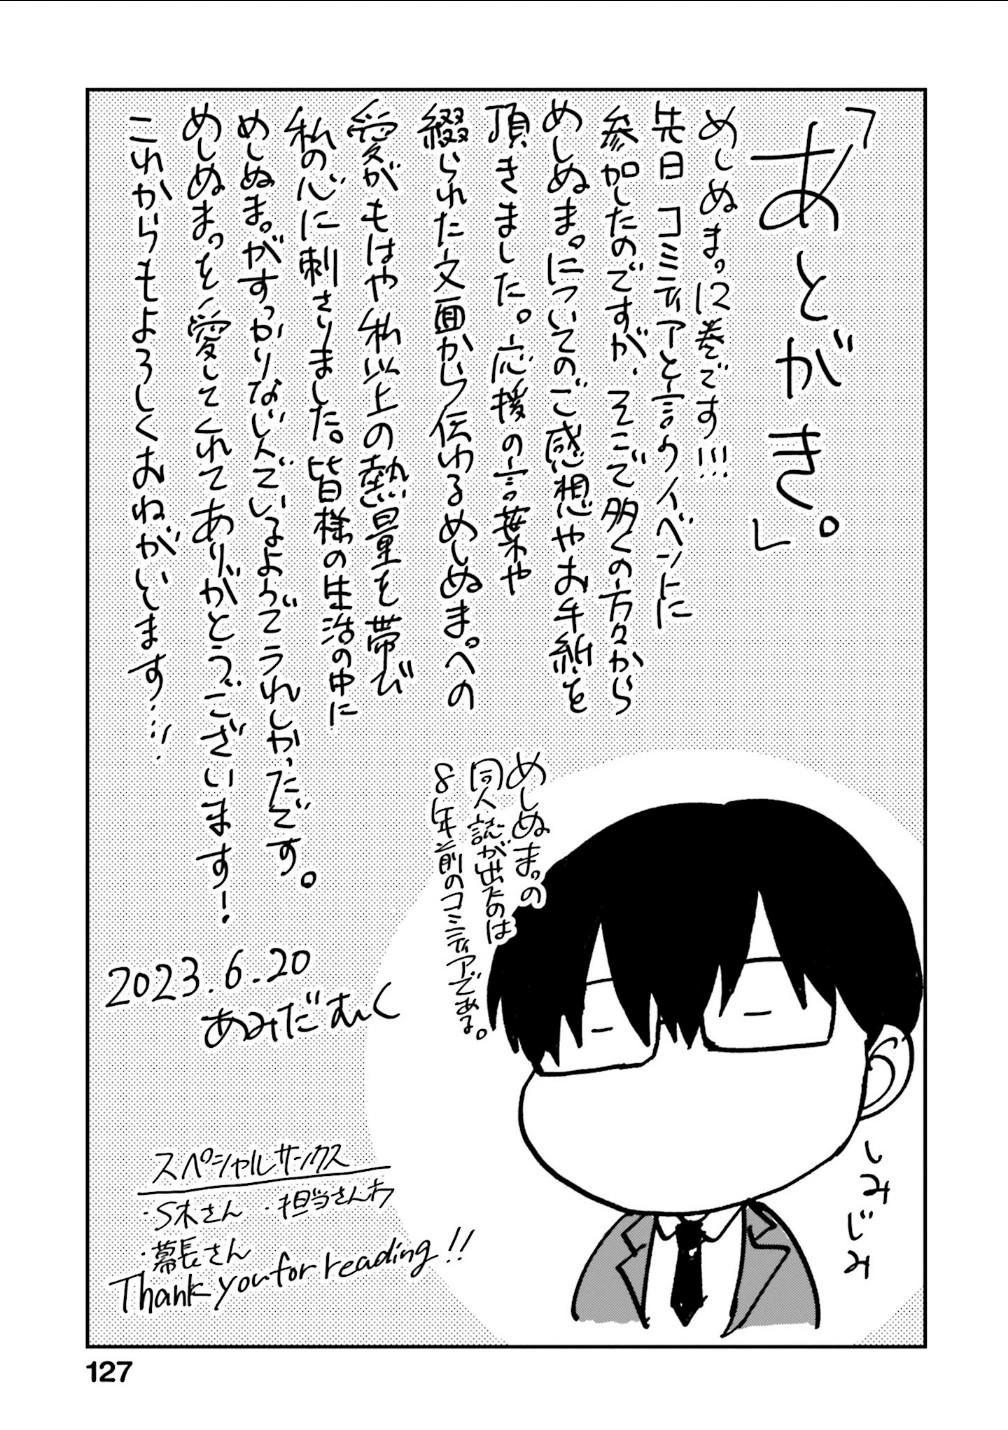 「あとがき。」
めしぬま。12巻です!!!
先日 コミティアと言うイベントに
参加したのですが、そこで多くの方々から
めしぬま。についてのご感想やお手紙を
頂きました。応援の言葉や
綴られた文面から伝わるめしぬま。への
愛がもはや私以上の熱量を帯び
私の心に刺さりました。皆様の生活の中に
めしぬま。がすっかりなじんでいるようでうれしかったです。
めしぬま。を愛してくれてありがとうございます!
これからもよろしくおねがいします…!!
2023.6.20
あみだむく
めしぬま。の
同人誌が出たのは
8年前のコミティアである。
しみじみ
スペシャルサンクス
・S木さん ・担当さんわ
・幕長さん
Thank you for reading!!
127